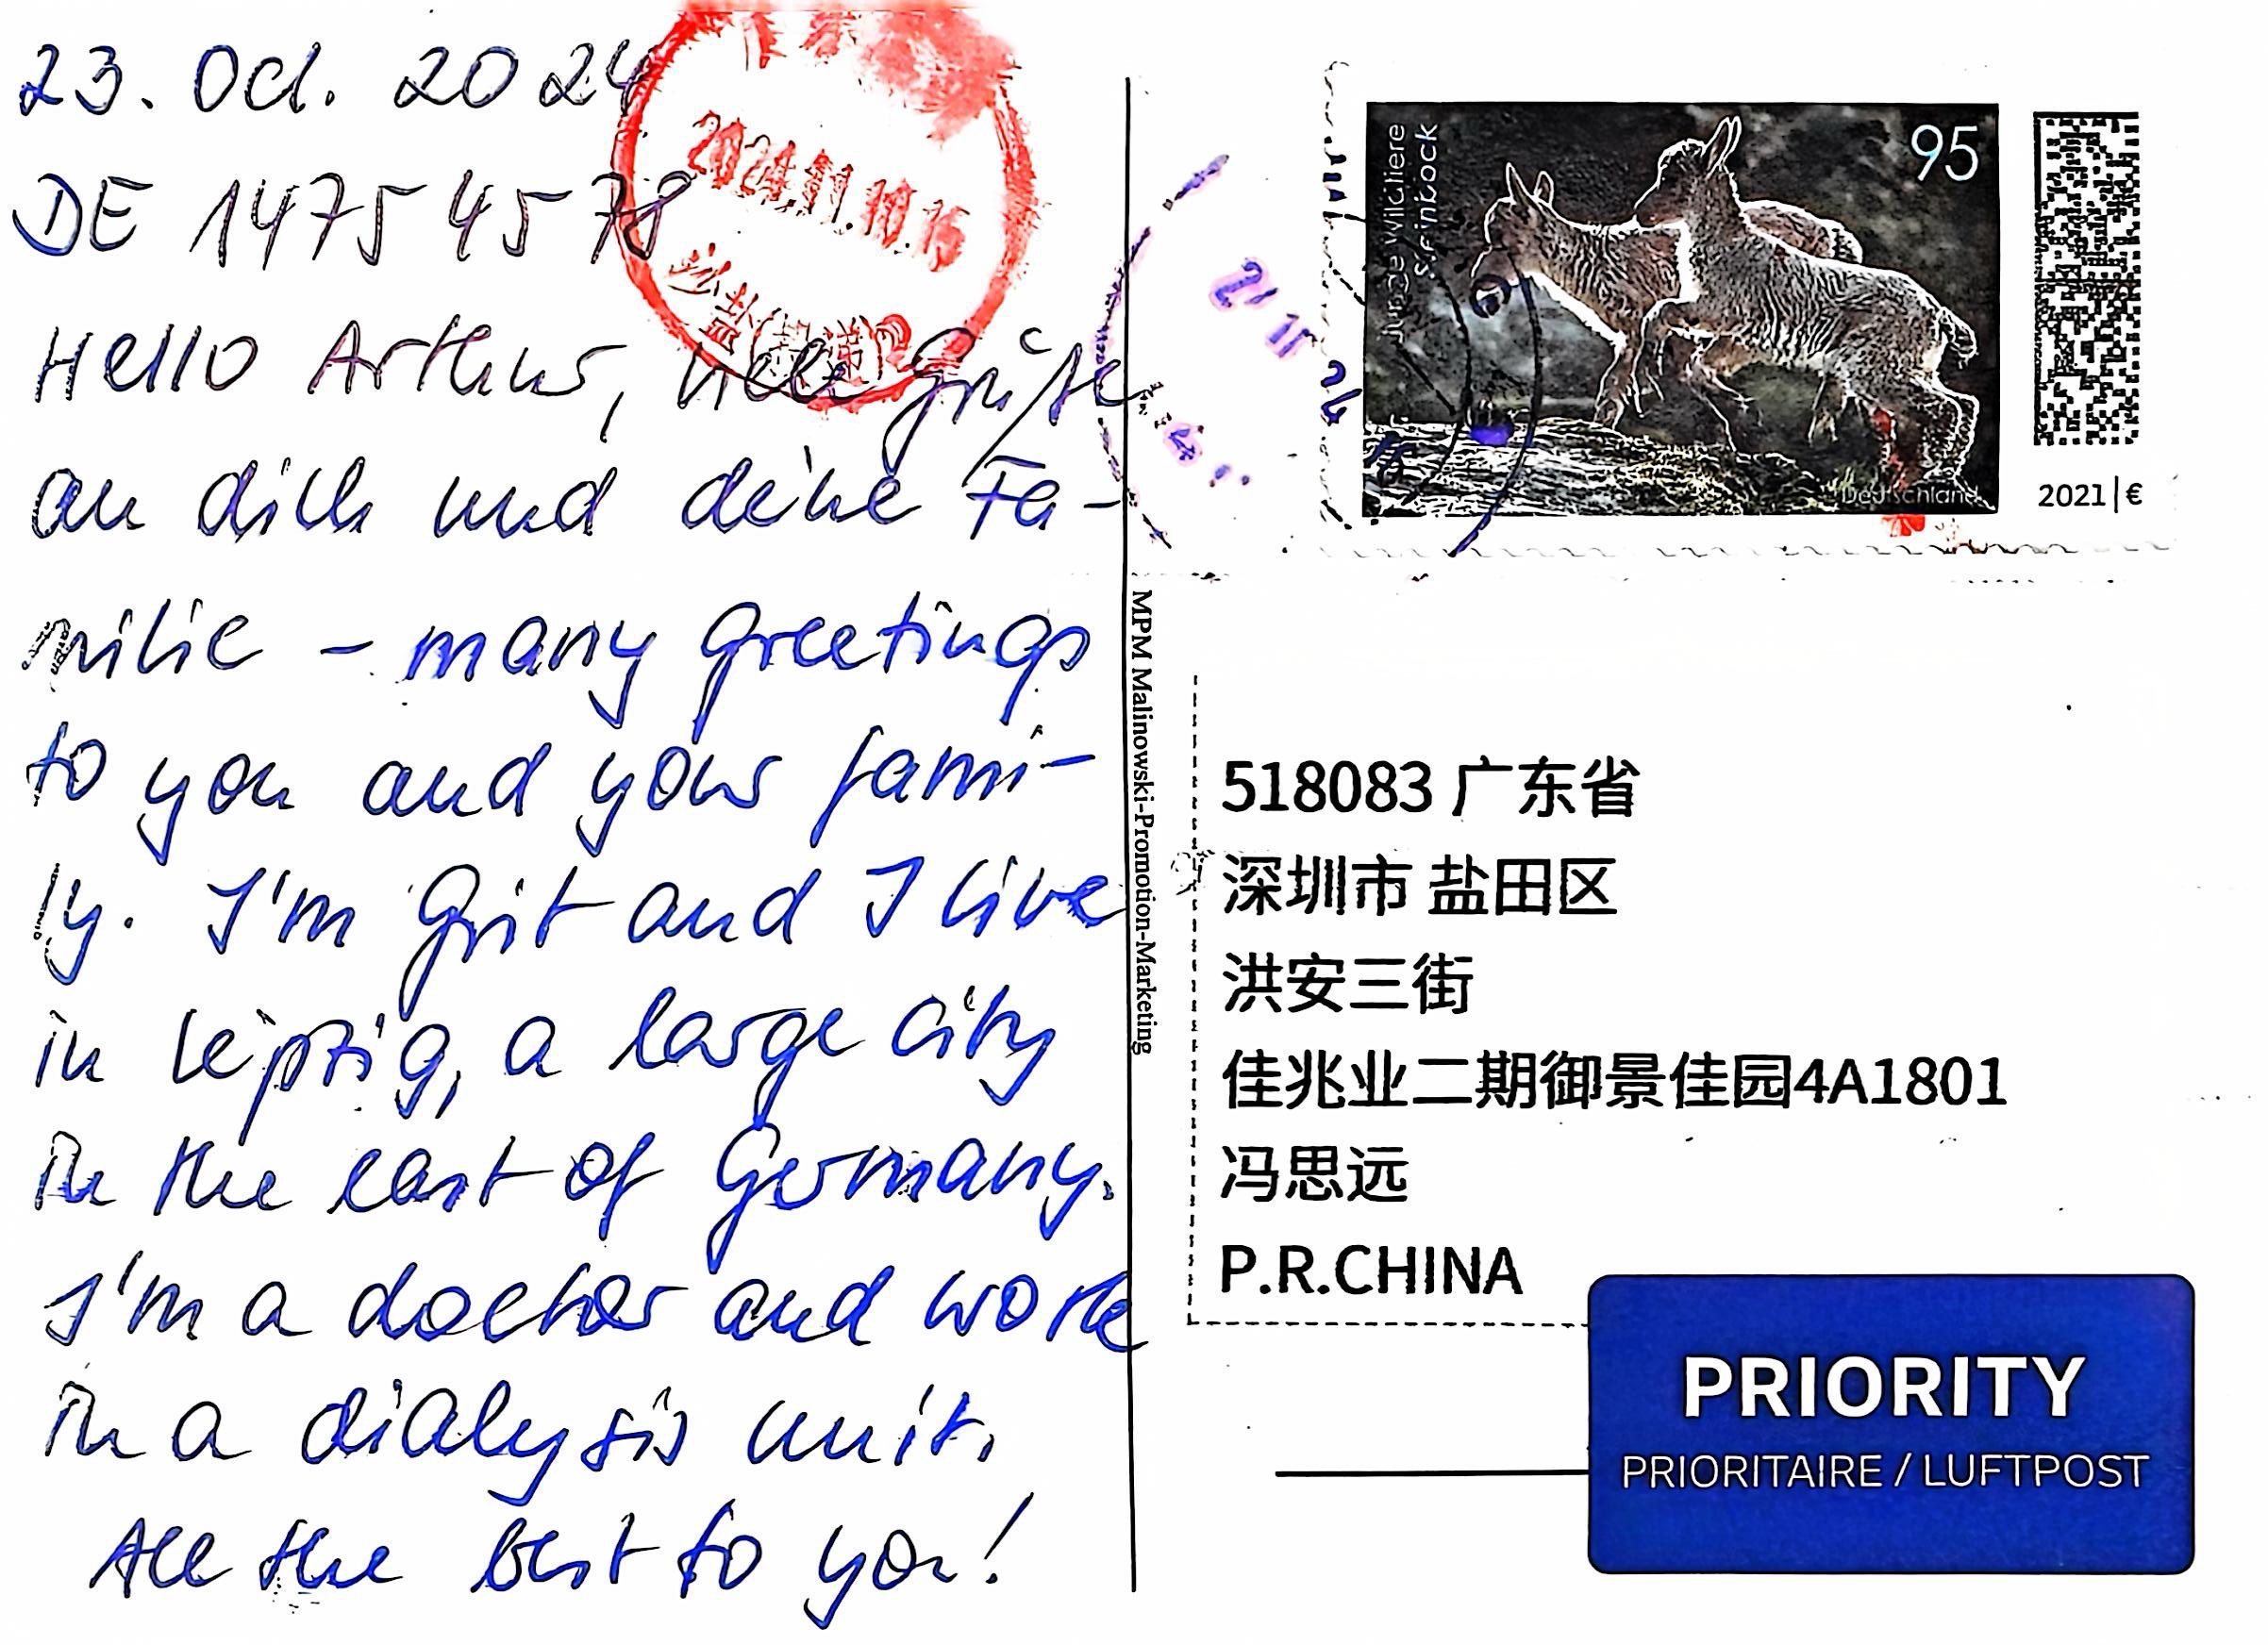 23. Oct. 2024
DE 14754578
Hello Arthur, viele Grüße
an dich und deine Fa-
milie - many greetings
to you and your fami-
ly. I'm Grit and I live
in Leipzig, a large city
in the east of Germany.
I'm a doctor and work
in a dialysis unit.
All the best to you!
2024.11.10.15
MPM Malinowski-Promotion-Marketing
Junge Wildtiere
Steinbock
95
Deutschland
2021 | €
518083 广东省
深圳市 盐田区
洪安三街
佳兆业二期御景佳园4A1801
冯思远
P.R.CHINA
PRIORITY
PRIORITAIRE / LUFTPOST